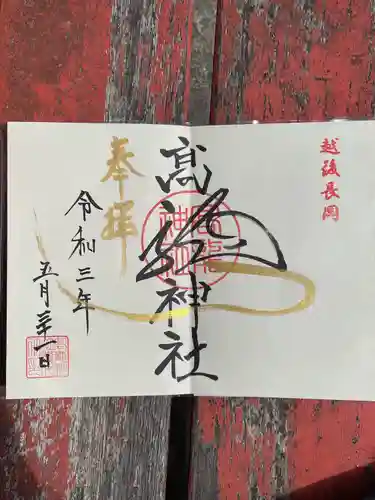 越後長岡
髙龍神社
高龍神社
奉拝
令和三年
五月三十一日